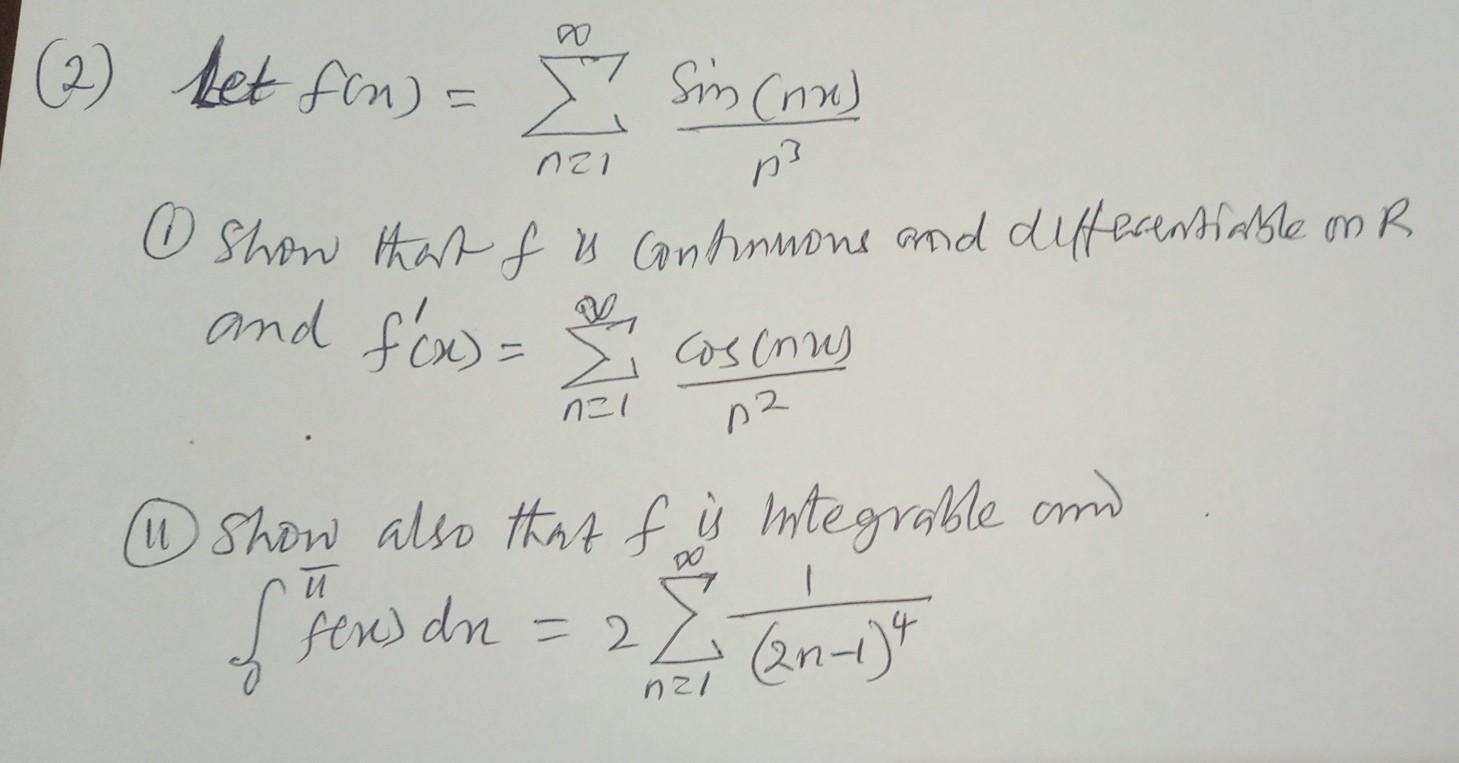 (2) Let f(x) = ∞∑n=1 Sin(nx)/n³
① Show that f is Continuous and differentiable on R
and f'(x) = ∞∑n=1 Cos(nx)/n²
⑪ Show also that f is Integrable and
∫₀^π f(x) dx = 2 ∞∑n=1 1/(2n-1)⁴